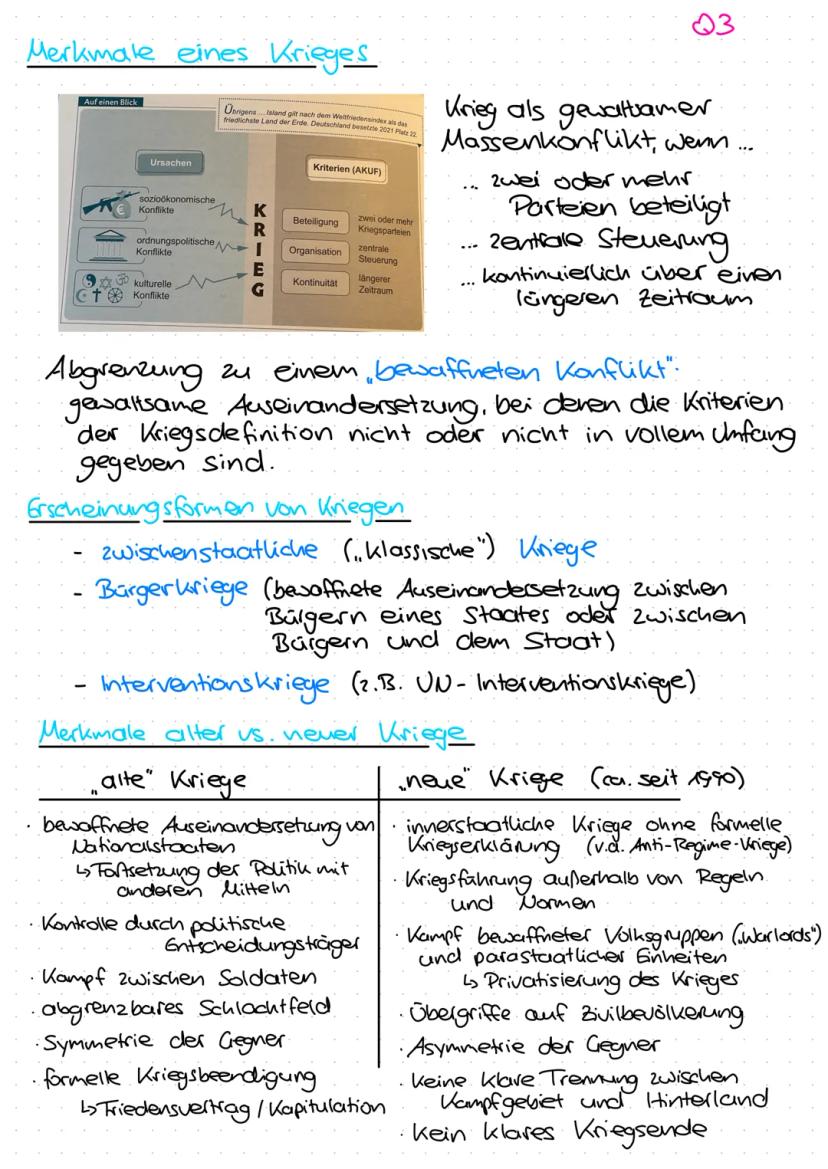 Q3
Merkmale eines Krieges
Auf einen Blick
Übrigens ... Island gilt nach dem Weltfriedensindex als das
friedlichste Land der Erde. Deutschland besetzte 2021 Platz 22.
Ursachen
Kriterien (AKUF)
sozioökonomische
Konflikte
ordnungspolitische
Konflikte
kulturelle
Konflikte
KRIEG
Beteiligung
zwei oder mehr
Kriegsparteien
Organisation
zentrale
Steuerung
Kontinuität
längerer
Zeitraum
Krieg als gewaltsamer
Massenkonflikt, wenn ...
... zwei oder mehr
Parteien beteiligt
... zentrale Steuerung
... kontinuierlich über einen
längeren Zeitraum
Abgrenzung zu einem „bewaffneten Konflikt":
gewaltsame Auseinandersetzung, bei deren die Kriterien
der Kriegsdefinition nicht oder nicht in vollem Umfang
gegeben sind.
Erscheinungsformen von Kriegen
- zwischenstaatliche („klassische") Kriege
- Bürgerkriege (bewaffnete Auseinandersetzung zwischen
Bürgern eines Staates oder zwischen
Bürgern und dem Staat)
- Interventionskriege (z.B. UN-Interventionskriege)
Merkmale alter vs. neuer Kriege
„alte" Kriege
· bewaffnete Auseinandersetzung von
Nationalstaaten
↳ Fortsetzung der Politik mit
anderen Mitteln
· Kontrolle durch politische
Entscheidungsträger
· Kampf zwischen Soldaten
· abgrenzbares Schlachtfeld
· Symmetrie der Gegner
· formelle Kriegsbeendigung
↳ Friedensvertrag / Kapitulation
„neue" Kriege (ca. seit 1990)
· innerstaatliche Kriege ohne formelle
Kriegserklärung (v.a. Anti-Regime-Kriege)
· Kriegsführung außerhalb von Regeln
und Normen
· Kampf bewaffneter Volksgruppen („Warlords")
und parastaatlicher Einheiten
↳ Privatisierung des Krieges
· Übergriffe auf Zivilbevölkerung
· Asymmetrie der Gegner
· keine klare Trennung zwischen
Kampfgebiet und Hinterland
· kein klares Kriegsende